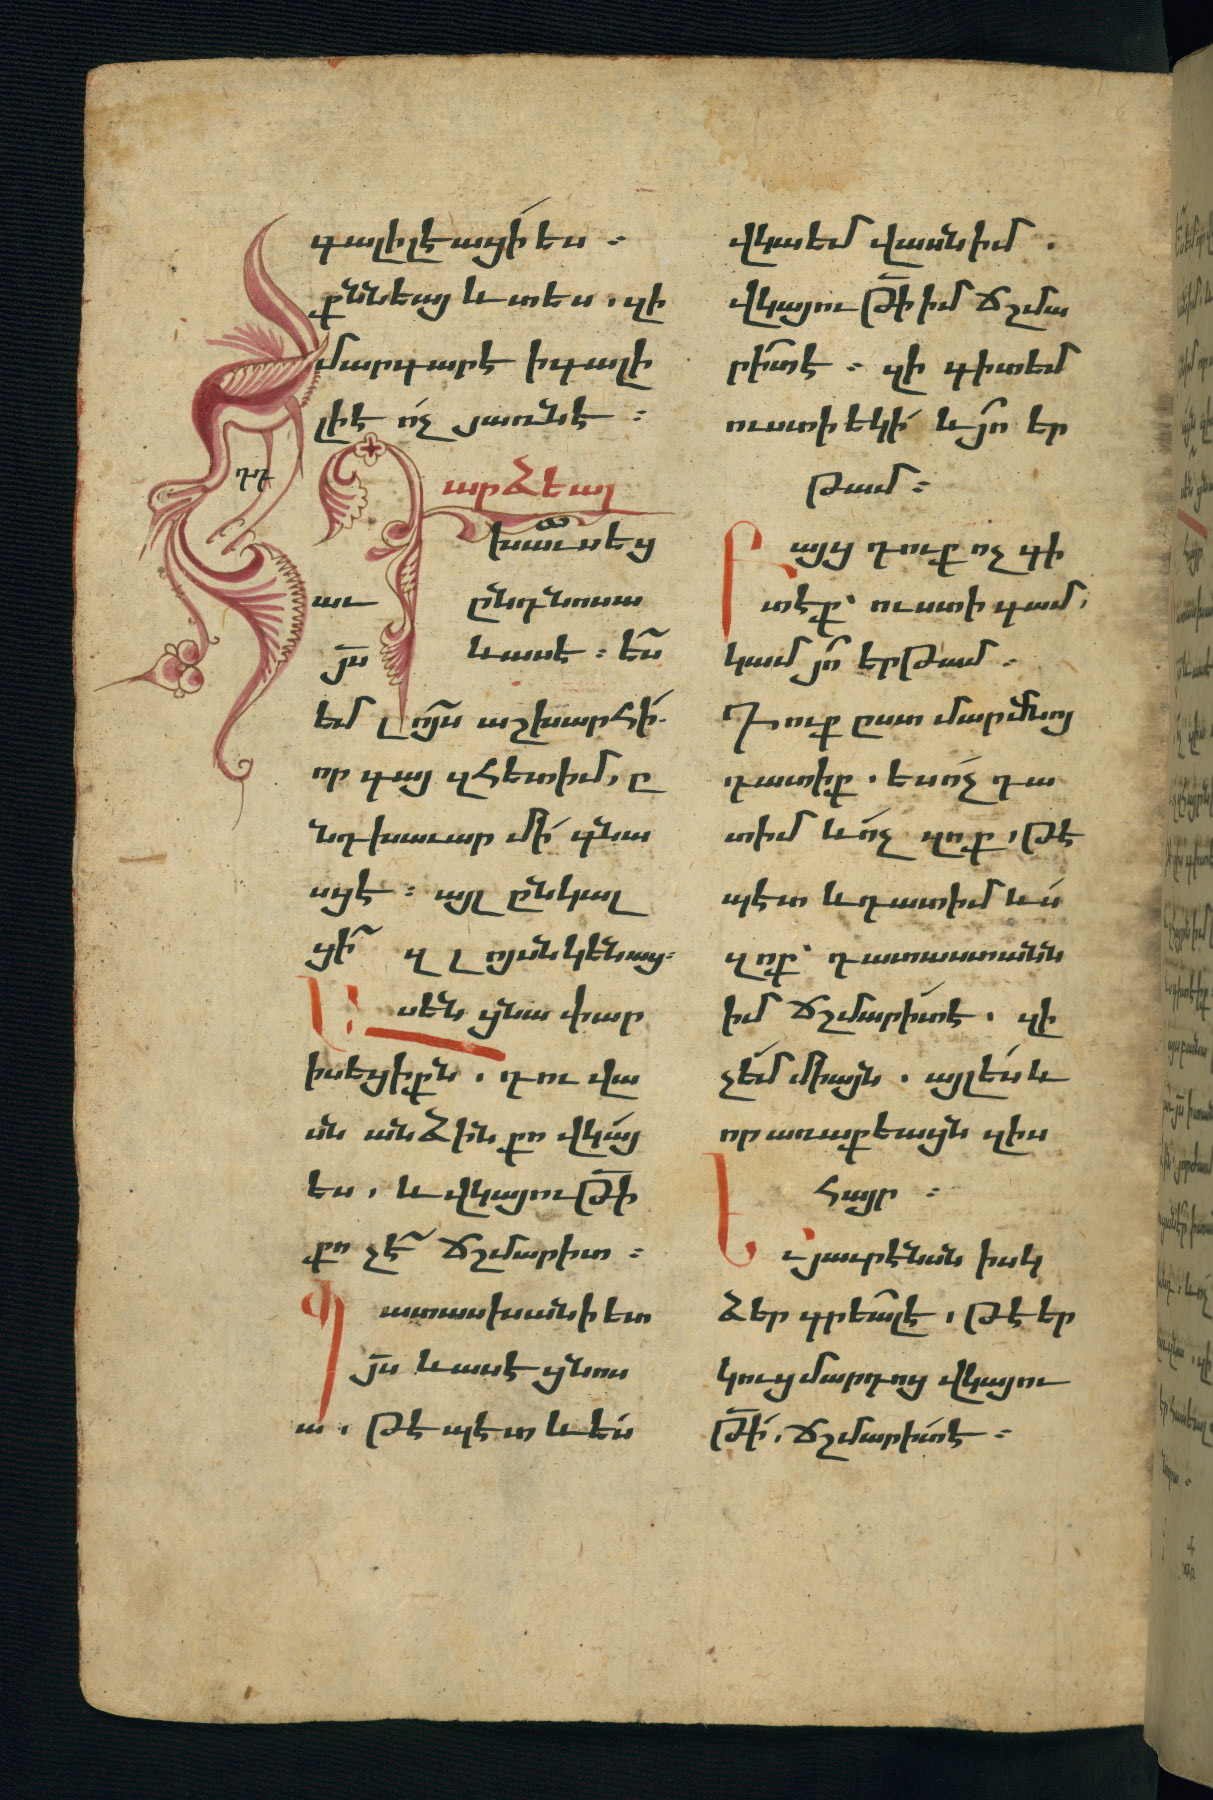 գալիլէացի՛ ես ։
քննեաց և տես , զի
մարգարէ ի գալի
լիէ ո՛չ յառնէ ։
ԴԴ
Դարձեալ
խաւսեց
աւ ընդնոսա
յս̄ և ասէ ։ ես̃
եմ լոյս̃ աշխարհի՛.
որ գայ զհետ իմ , ը
նդ խաւար մի՛ գնա
սցէ ։ այլ ընկալ
ցի̃ զլոյսն կենաց ։
Ասեն ցնա փար
իսեցիքն . դու վա
սն անձին քո վկա՛յ
ես , և վկայութի̄
քո չէ̃ ճշմարիտ ։
Պատասխանի ետ
յս̄ և ասէ ցնոս
ա , թէպէտ և ես
վկաեմ վասն իմ .
վկայութի̄ իմ ճշմա
րիտ է ։ զի գիտեմ
ուստի եկի՛ և յո̃ եր
թամ ։
Բայց դուք ոչ գի
տէք՝ ուստի գամ ,
կամ յո̃ երթամ ։
Դուք ըստ մարմնոյ
դատիք . ես ո՛չ դա
տիմ և ո՛չ զոք , թէ
պէտ և դատիմ ես
զոք՝ դատաստանն
իմ ճշմարի՛տ է . զի
չե՛մ միայն . այլ ե՛ս և
որ առաքեացն զիս
հայր ։
Եւ յաւրէնսն իսկ
ձեր գրեա̃լ է , թէ եր
կուց մարդոց վկայու
թի̄ , ճշմարի՛տ է ։